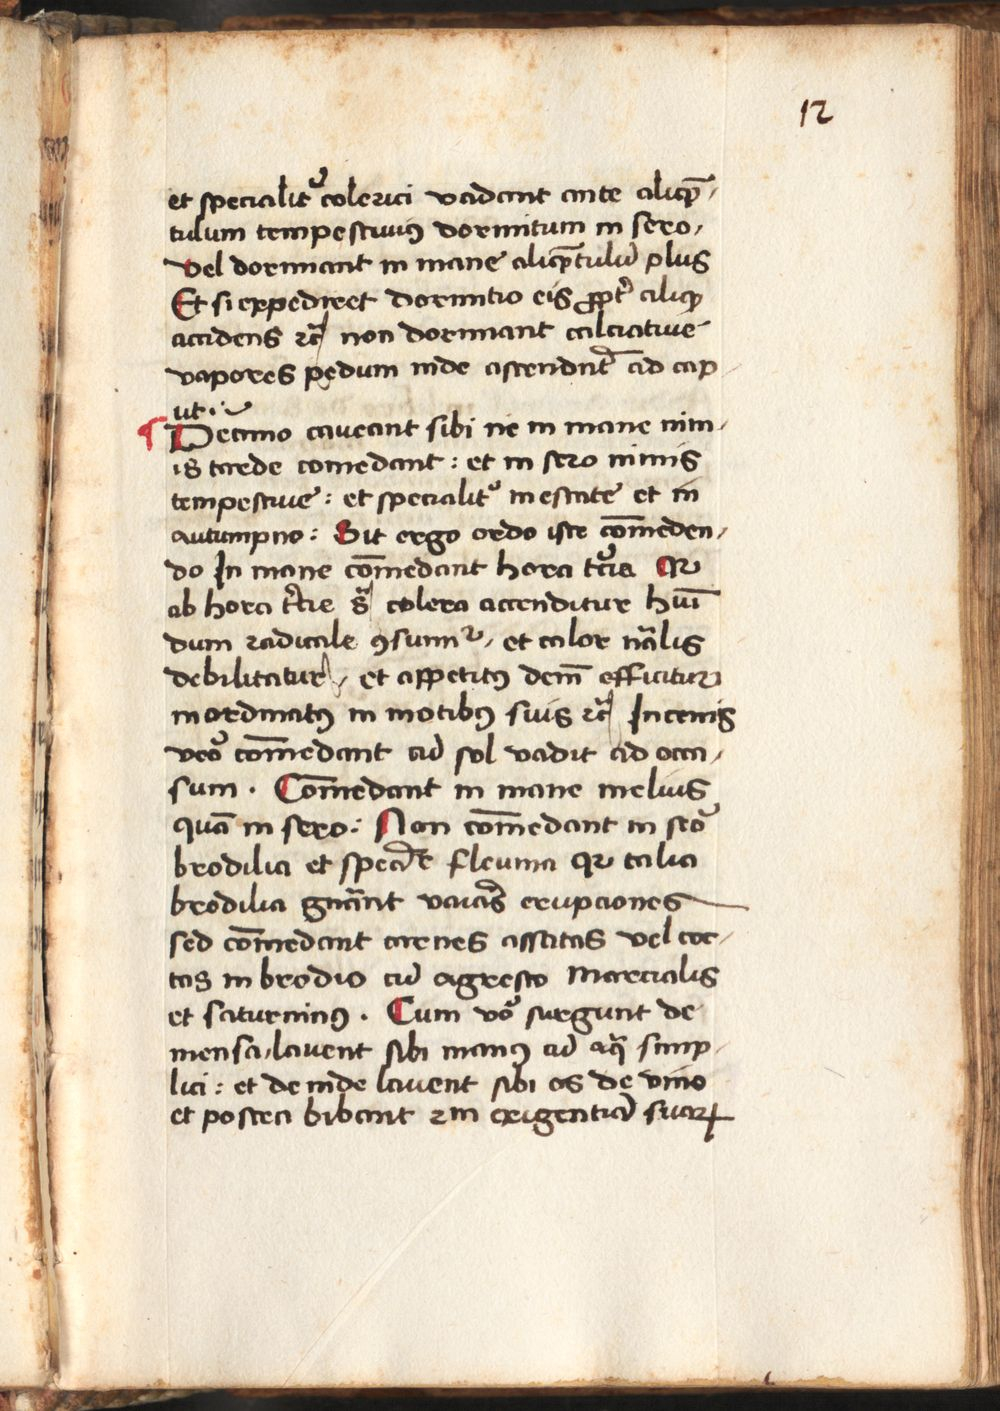 12
et specialit᷒ colerici vadant ante aliqͣ̄
tulum tempestiuiꝰ dormitum in sero,
vel dormant in mane aliqͣ̄tulū plus
Et si expediret dormitio eis ꝓpt̉ aliqḋ
accidens ⁊c̄ non dormant calciatiue
vapores pedum inde ascendūt ad cap
ut.
¶ Decimo caueant sibi ne in mane nim
is tarde comedant : et in sero nimis
tempestiue : et specialit᷒ in estate et in
autumpno : Sit ergo ordo iste com̄eden,
do In mane com̄edant hora t̉cia Qꝛ
ab hora t̉cie s̄ colera accenditur hūi
dum radicale ꝯsumit᷑, et calor nāalis
debilitatur, et appetitꝰ dem̄ efficitur
inordinatꝰ in motibꝰ suis ⁊c̄ In cenis
veo᷒ com̄edant cū sol vadit ad occa,
sum . Com̄edant in mane melius
quā in sero : Non com̄edant in seo᷒
brodilia et fleuma qꝛ talia
brodilia gn̄ant erupciones
sed com̄edant carnes assatas vel coc,
tas in brodio cū agresto Marcialis
et saturninꝰ . Cum vo᷒ surgunt de
mensa, lauent sibi manꝰ cū aqͣ simp
lici : et deinde lauent sibi os de vino
et postea bibant ⁊m exigentiā suaꝝ